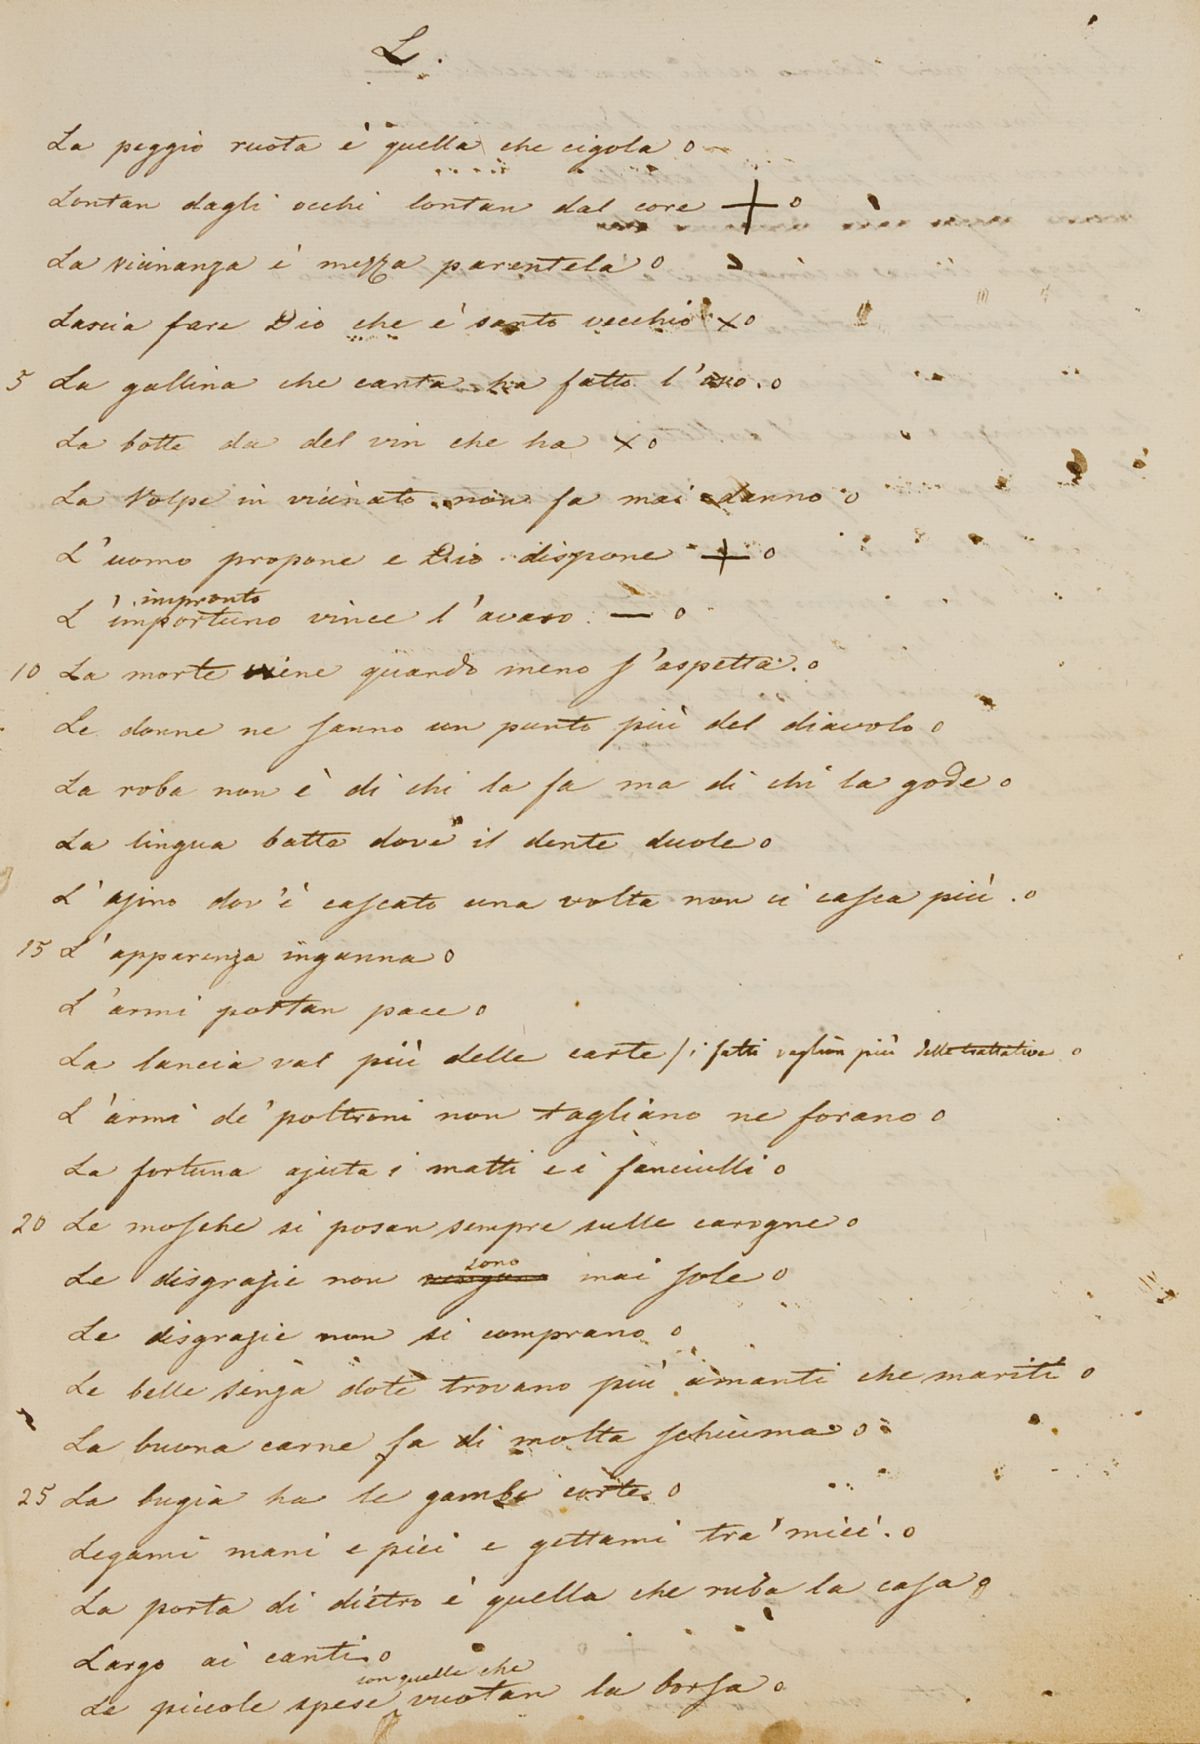 L.
La peggio ruota è quella che cigola o
Lontan dagli occhi lontan dal core + o
La vicinanza è mezza parentela o
Lascia fare Dio che è santo vecchio x o
5 La gallina che canta ha fatto l'ovo. o
La botte da del vin che ha x o
La Volpe in vicinato non fa mai danno o
L'uomo propone e Dio dispone + o
impronto
L'importuno vince l'avaro — o
10 La morte viene quando meno s'aspetta. o
Le donne ne sanno un punto più del diavolo o
La roba non è di chi la fa ma di chi la gode o
La lingua batte dove il dente duole o
L'asino dov'è cascato una volta non ci casca più. o
15 L'apparenza inganna o
L'armi portan pace o
La lancia val più delle carte / i fatti vaglion più delle trattative o
L'armi de' poltroni non tagliano ne forano o
La fortuna ajuta i matti e i fanciulli o
20 Le mosche si posan sempre sulle carogne o
sono
Le disgrazie non vengono mai sole o
Le disgrazie non si comprano o
Le belle senza dote trovano più amanti che mariti o
La buona carne fa di molta schiuma o
25 La bugia ha le gambe corte. o
Legami mani e piei e gettami tra' miei. o
La porta di dietro è quella che ruba la casa o
Largo ai canti. o
son quelle che
Le piccole spese vuotan la borsa o